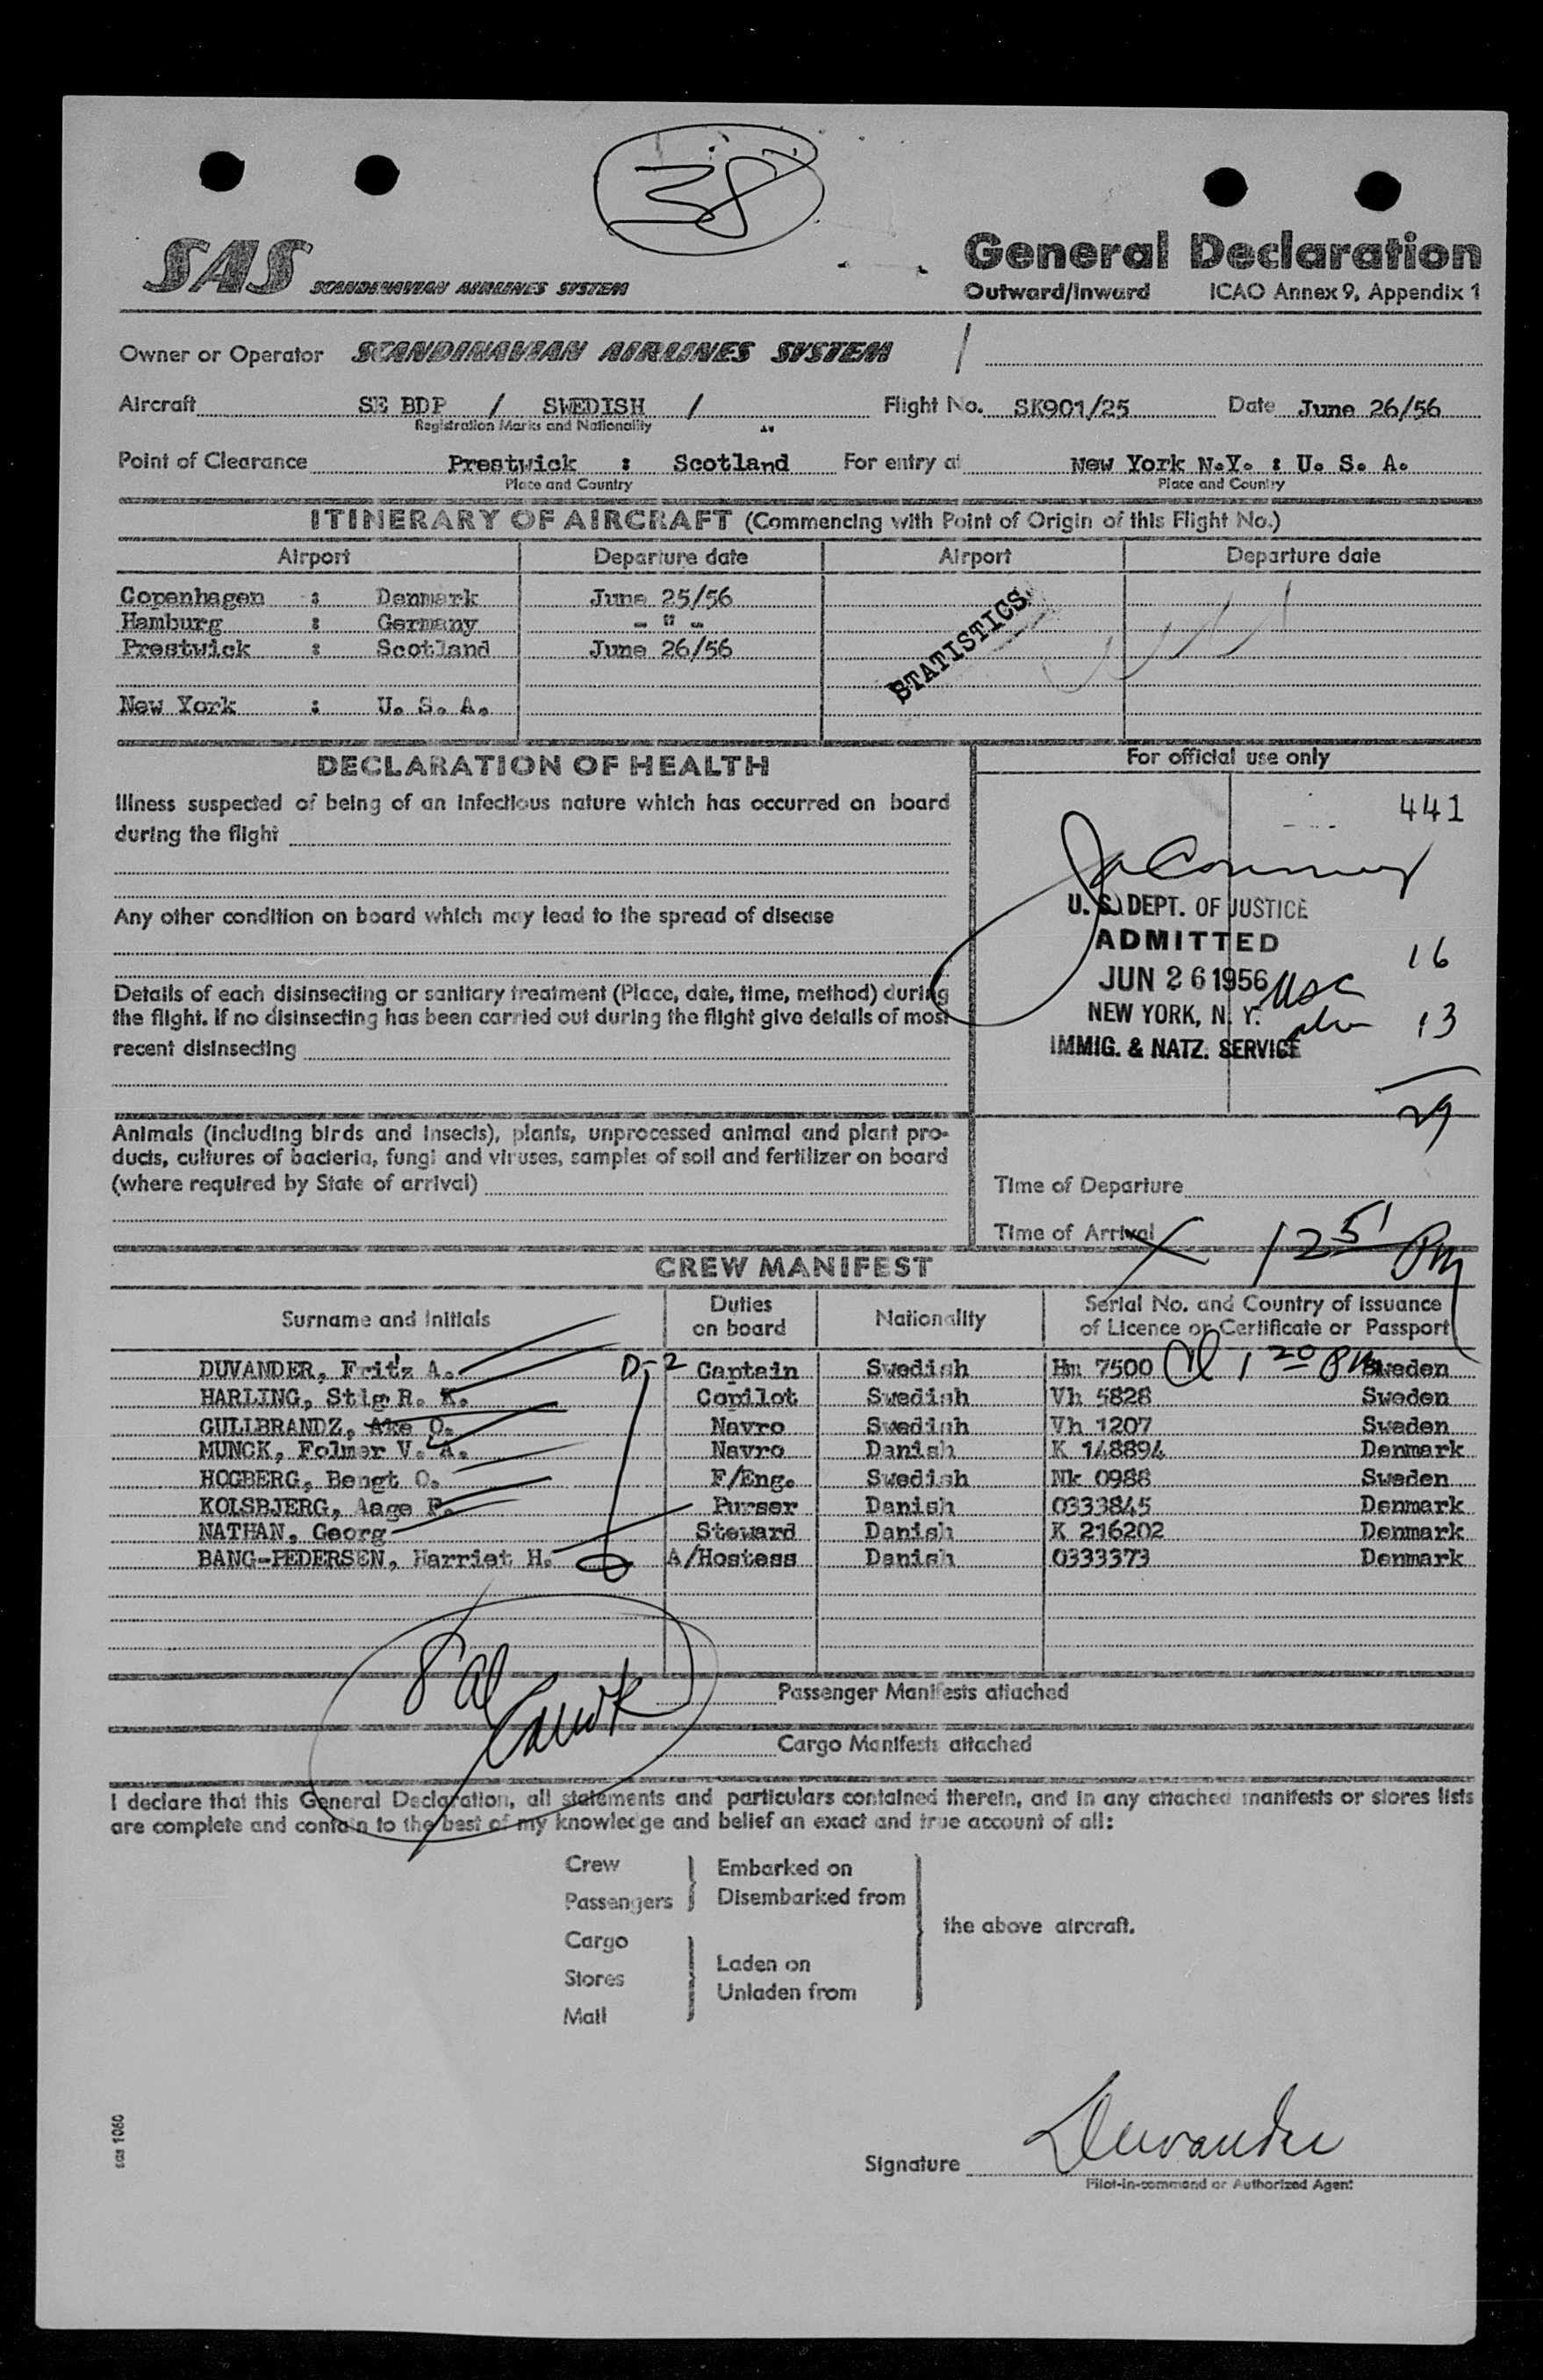 38
SAS SCANDINAVIAN AIRLINES SYSTEM
General Declaration
Outward/Inward ICAO Annex 9, Appendix 1
Owner or Operator SCANDINAVIAN AIRLINES SYSTEM /
Aircraft SE BDP / SWEDISH / Flight No. SK901/25 Date June 26/56
Registration Marks and Nationality
Point of Clearance Prestwick : Scotland For entry at New York N.Y. : U. S. A.
Place and Country Place and Country
ITINERARY OF AIRCRAFT (Commencing with Point of Origin of this Flight No.)
Airport Departure date Airport Departure date
Copenhagen : Denmark June 25/56
Hamburg : Germany - " -
Prestwick : Scotland June 26/56
New York : U. S. A.
STATISTICS
DECLARATION OF HEALTH
Illness suspected of being of an infectious nature which has occurred on board
during the flight
Any other condition on board which may lead to the spread of disease
Details of each disinsecting or sanitary treatment (Place, date, time, method) during
the flight. If no disinsecting has been carried out during the flight give details of most
recent disinsecting
For official use only
441
U. S. DEPT. OF JUSTICE
ADMITTED
JUN 26 1956 usc 16
NEW YORK, N. Y. 13
IMMIG. & NATZ. SERVICE
29
Animals (including birds and insects), plants, unprocessed animal and plant pro-
ducts, cultures of bacteria, fungi and viruses, samples of soil and fertilizer on board
(where required by State of arrival)
Time of Departure
Time of Arrival X 12 51 Pm
CREW MANIFEST
Surname and Initials Duties on board Nationality Serial No. and Country of Issuance of Licence or Certificate or Passport
DUVANDER, Fritz A. D-2 Captain Swedish Hm 7500 Cl 1 20 PM Sweden
HARLING, Stig R. K. Copilot Swedish Vh 5828 Sweden
GULLBRANDZ, Ake O. Navro Swedish Vh 1207 Sweden
MUNCK, Folmer V. A. Navro Danish K 148894 Denmark
HOGBERG, Bengt O. F/Eng. Swedish Nk 0988 Sweden
KOLSBJERG, Aage F. Purser Danish 0333845 Denmark
NATHAN, Georg Steward Danish K 216202 Denmark
BANG-PEDERSEN, Harriet H. A/Hostess Danish 0333373 Denmark
8 al
Passenger Manifests attached
Cargo Manifests attached
I declare that this General Declaration, all statements and particulars contained therein, and in any attached manifests or stores lists
are complete and contain to the best of my knowledge and belief an exact and true account of all:
Crew Embarked on
Passengers Disembarked from
the above aircraft.
Cargo
Laden on
Stores
Unladen from
Mail
sas 1060
Signature Duvander
Pilot-in-command or Authorized Agent